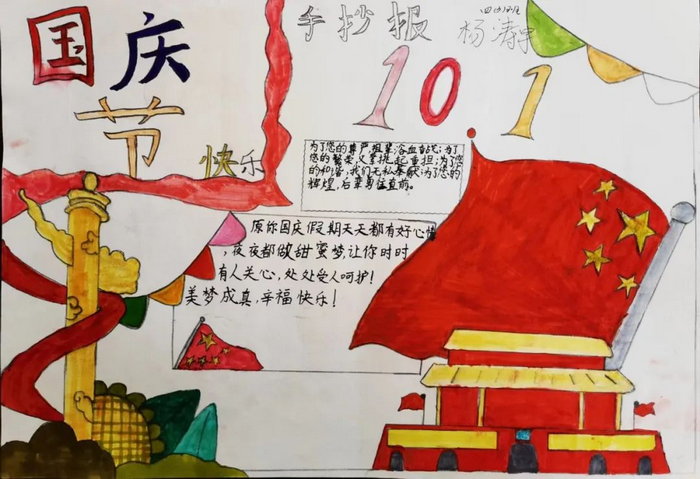 国庆
节
快乐
手抄报
四(4)班
杨涛宇
101
为了您的尊严,祖辈浴血奋战;为了
您的繁荣,父辈挑起重担;为了您
的和谐,我们无私奉献;为了您的
辉煌,后辈勇往直前。
原你国庆假期天天都有好心情
,夜夜都做甜蜜梦,让你时时
有人关心,处处受人呵护!
美梦成真,辛福快乐!